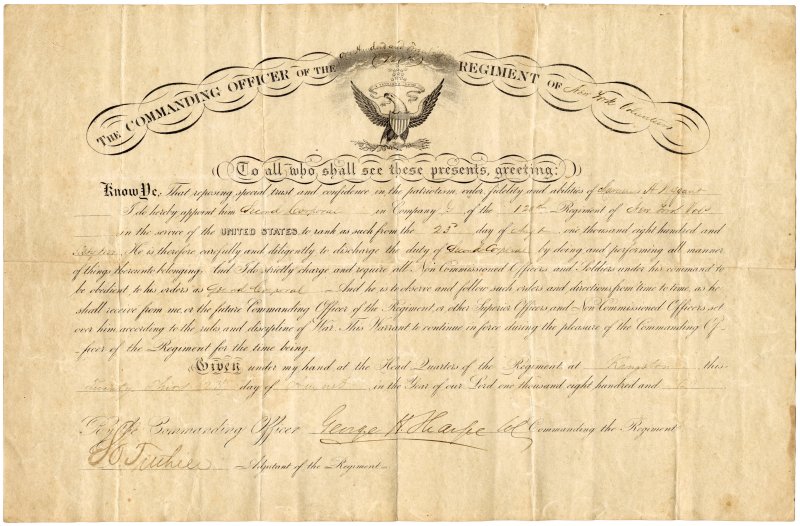 THE COMMANDING OFFICER OF THE One hundred and REGIMENT OF New York Volunteers
To all who shall see these presents, greeting:
Know Ye, That reposing special trust and confidence in the patriotism, valor, fidelity and abilities of
I do hereby appoint him Second Corporal in Company of the 120th Regiment of New York Vols
in the service of the UNITED STATES, to rank as such from the 23d day of one thousand eight hundred and
He is therefore carefully and diligently to discharge the duty of Second Corporal by doing and performing all manner
of things thereunto belonging. And I do strictly charge and require all Non Commissioned Officers and Soldiers under his command to
be obedient to his orders as Corporal And he is to observe and follow such orders and directions from time to time, as he
shall receive from me, or the future Commanding Officer of the Regiment, or other Superior Officers and Non Commissioned Officers set
over him, according to the rules and discipline of War. This Warrant to continue in force during the pleasure of the Commanding Of-
ficer of the Regiment for the time being.
Given under my hand at the Head Quarters of the Regiment, at Kingston this
Twenty Third day of August in the Year of our Lord one thousand eight hundred and
By the Commanding Officer George H Sharpe Col Commanding the Regiment
Adjutant of the Regiment